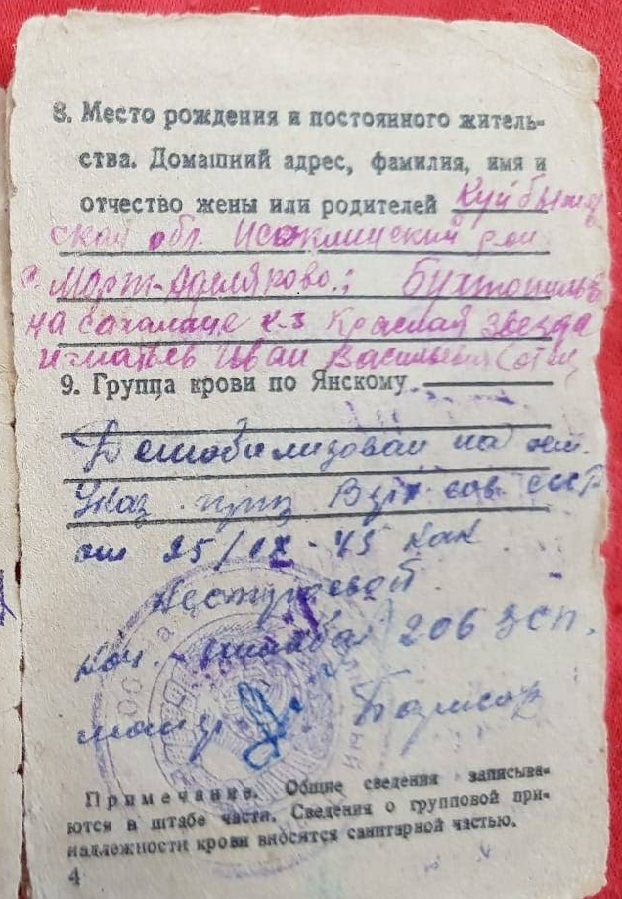 8. Место рождения и постоянного житель-
ства. Домашний адрес, фамилия, имя и
отчество жены или родителей Куйбышев
ской обл. Исаклинский р-он
с. Морт-
на сахалане к-з Красная звезда
Иван Васильевич
9. Группа крови по Янскому.
Демобилизован на осн.
Указ през Верх сов. СССР
от 25/IX-45 как
нач. штаба 206 ЗСП.
майор Борисов
Примечание. Общие сведения записыва-
ются в штабе части. Сведения о групповой при-
надлежности крови вносятся санитарной частью.
4